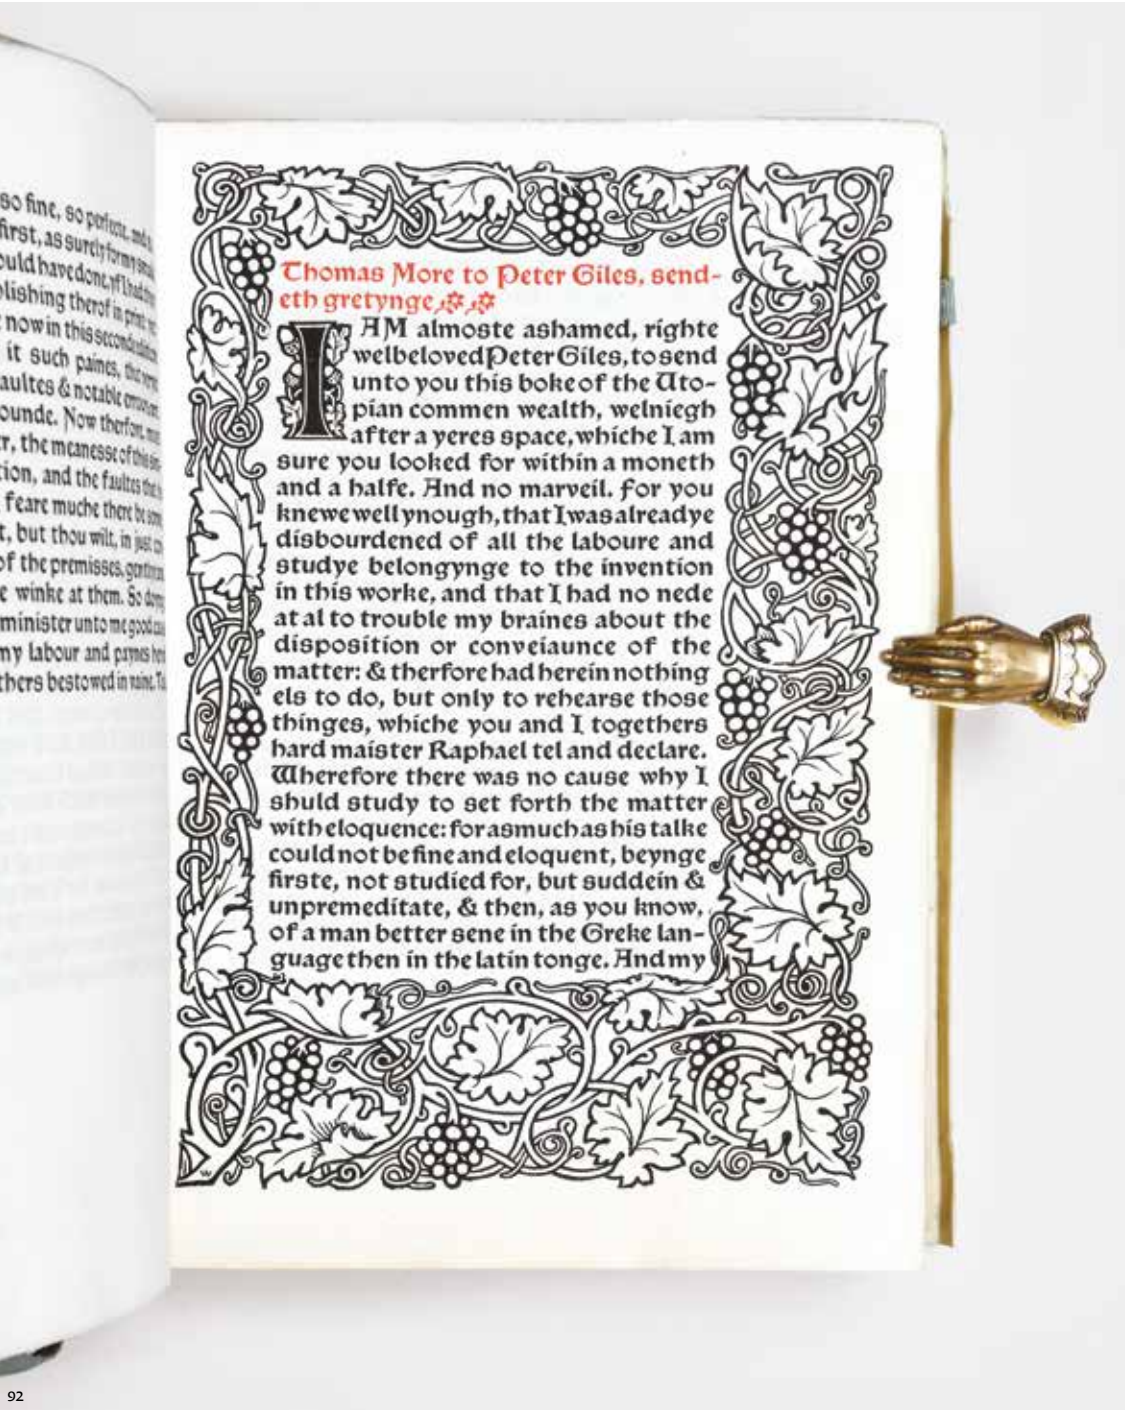 so fine, so perfecte, and
first, as surely for my
ould have done, yf I had
blishing therof in print
now in this second
it such paines,
aultes & notable
ounde. Now therfore,
r, the meanesse of this
tion, and the faultes
feare muche there be
t, but thou wilt, in just
of the premisses,
e winke at them. So
minister unto me good
my labour and paynes
thers bestowed in vaine.
Thomas More to Peter Giles, send-
eth gretynge
I AM almoste ashamed, righte
welbeloved Peter Giles, to send
unto you this boke of the Uto-
pian commen wealth, welniegh
after a yeres space, whiche I am
sure you looked for within a moneth
and a halfe. And no marveil. For you
knewe well ynough, that I was alreadye
disbourdened of all the laboure and
studye belongynge to the invention
in this worke, and that I had no nede
at al to trouble my braines about the
disposition or conveiaunce of the
matter: & therfore had herein nothing
els to do, but only to rehearse those
thinges, whiche you and I togethers
hard maister Raphael tel and declare.
Wherefore there was no cause why I
shuld study to set forth the matter
with eloquence: forasmuch as his talke
could not be fine and eloquent, beynge
firste, not studied for, but suddein &
unpremeditate, & then, as you know,
of a man better sene in the Greke lan-
guage then in the latin tonge. And my
W
92